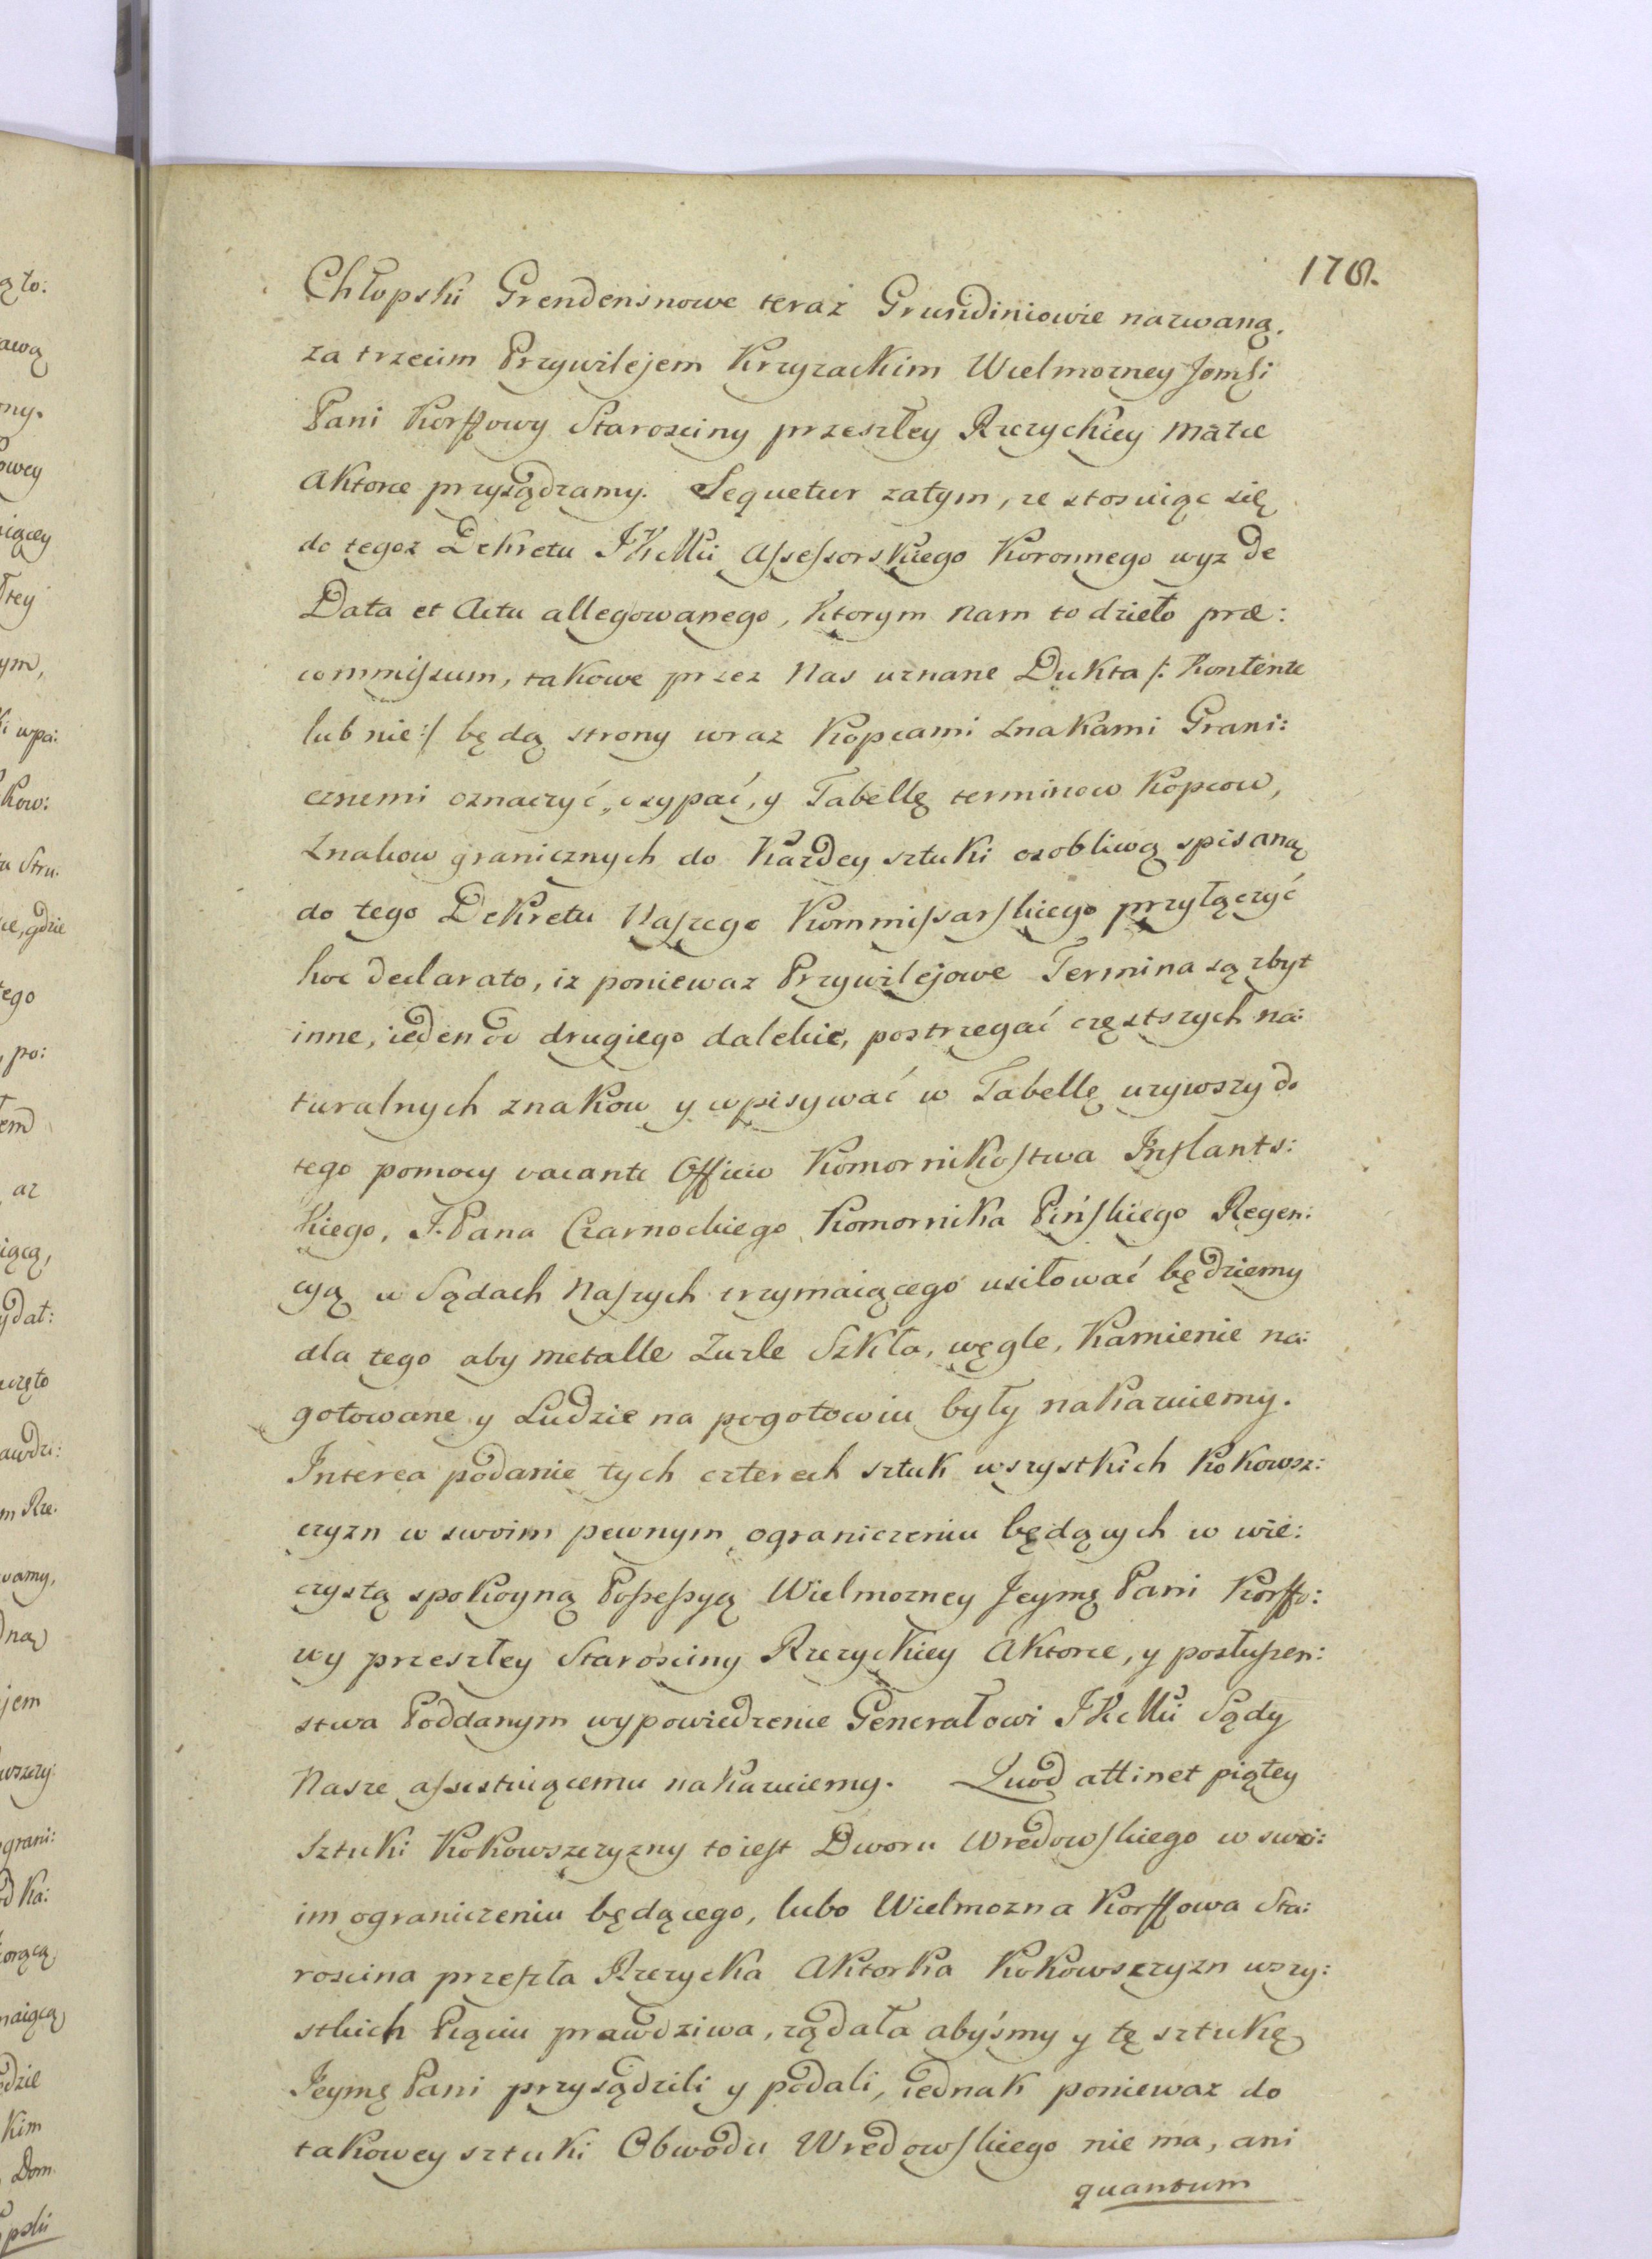 178.
Chłopski Grendensnowe teraz Grundiniowie nazwaną.
za trzecim Przywilejem Krzyzackim Wielmozney Jemći
Pani Korffowy Starosciny przeszłey Rzezyckiey Matce
Aktorce przysądzamy. Sequetur zatym, ze stosuiąc się
do tegoz Dekretu JKcMci Assessorskiego Koronnego wyz de
Data et Actu allegowanego, ktorym nam to dzieło præ:
commissum, takowe przez Nas uznane Dukta /: Kontente
lub nie:/ będą strony wraz Kopcami Znakami Grani:
cznemi oznaczyć, osypać, y Tabellę terminow Kopcow,
Znakow granicznych do Kazdey sztuki osobliwą spisaną
do tego Dekretu Naszego Kommissarskiego przyłączyć
hoc declarato, iz poniewaz Przywilejowe Termina są zbyt
inne, ieden od drugiego dalekie, postrzegać częstszych na:
turalnych znakow y wpisywać w Tabellę uzywszy do
tego pomocy vacante Officio Komornikostwa Inflants:
kiego, J. Pana Czarnockiego Komornika Pińskiego Regen:
cyą w Sądach Naszych trzymaiącego usiłować będziemy
dla tego aby metalle Zuzle Szkła, węgle, Kamienie na:
gotowane y Ludzie na pogotowiu były nakazuiemy.
Interea podanie tych czterech sztuk wszystkich Kokowsz:
czyzn w swoim pewnym ograniczeniu będących w wie:
czystą spokoyną Possessyą Wielmozney Jeymę Pani Korffo:
wy przeszłey Starosciny Rzezyckiey Aktorce, y posłuszen:
stwa Poddanym wypowiedzenie Generałowi JKcMci Sądy
Nasze assistuiącemu nakazuiemy. Quod attinet piątey
Sztuki Kokowszczyzny toiest Dworu Wredowskiego w swo:
im ograniczeniu będącego, lubo Wielmozna Korffowa Sta:
roscina przeszła Rzezycka Aktorka Kokowszczyzn wszy:
stkich Pięciu prawdziwa, ządała abyśmy y tę sztukę
Jeymę Pani przysądzili y podali, iednak poniewaz do
takowey sztuki Obwodu Wredowskiego nie ma, ani
quantum